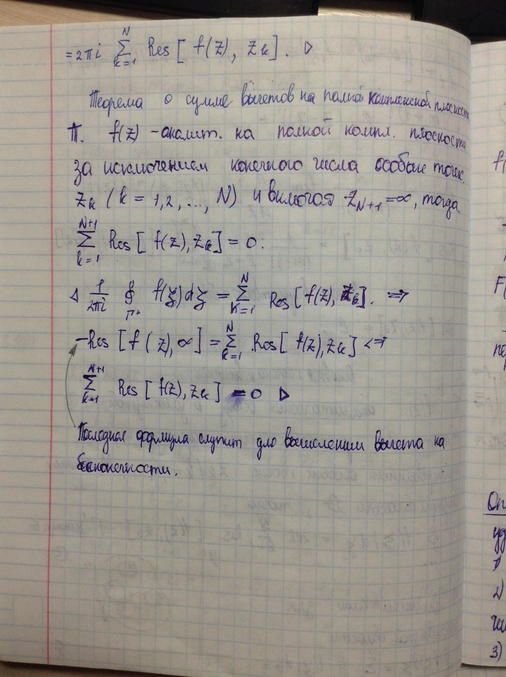 = 2πi ∑_{k=1}^{N} Res [ f(z), z_k ]. ▷
Теорема о сумме вычетов на полной комплексной плоскости
П. f(z) - аналит. на полной компл. плоскости
за исключением конечного числа особых точек
z_k (k = 1,2, ..., N) и включая z_{N+1} = ∞, тогда
∑_{k=1}^{N+1} Res [ f(z), z_k ] = 0.
◁ 1/2πi ∮_{Γ+} f(ξ)dξ = ∑_{k=1}^{N} Res [ f(z), z_k ]. ⇒
-Res [ f(z), ∞ ] = ∑_{k=1}^{N} Res [ f(z), z_k ] ⇔
∑_{k=1}^{N+1} Res [ f(z), z_k ] = 0 ▷
формула служит для вычисления вычета на
бесконечности.
f(
F(
пе
Оп
уд
1)
2)
чи
3)